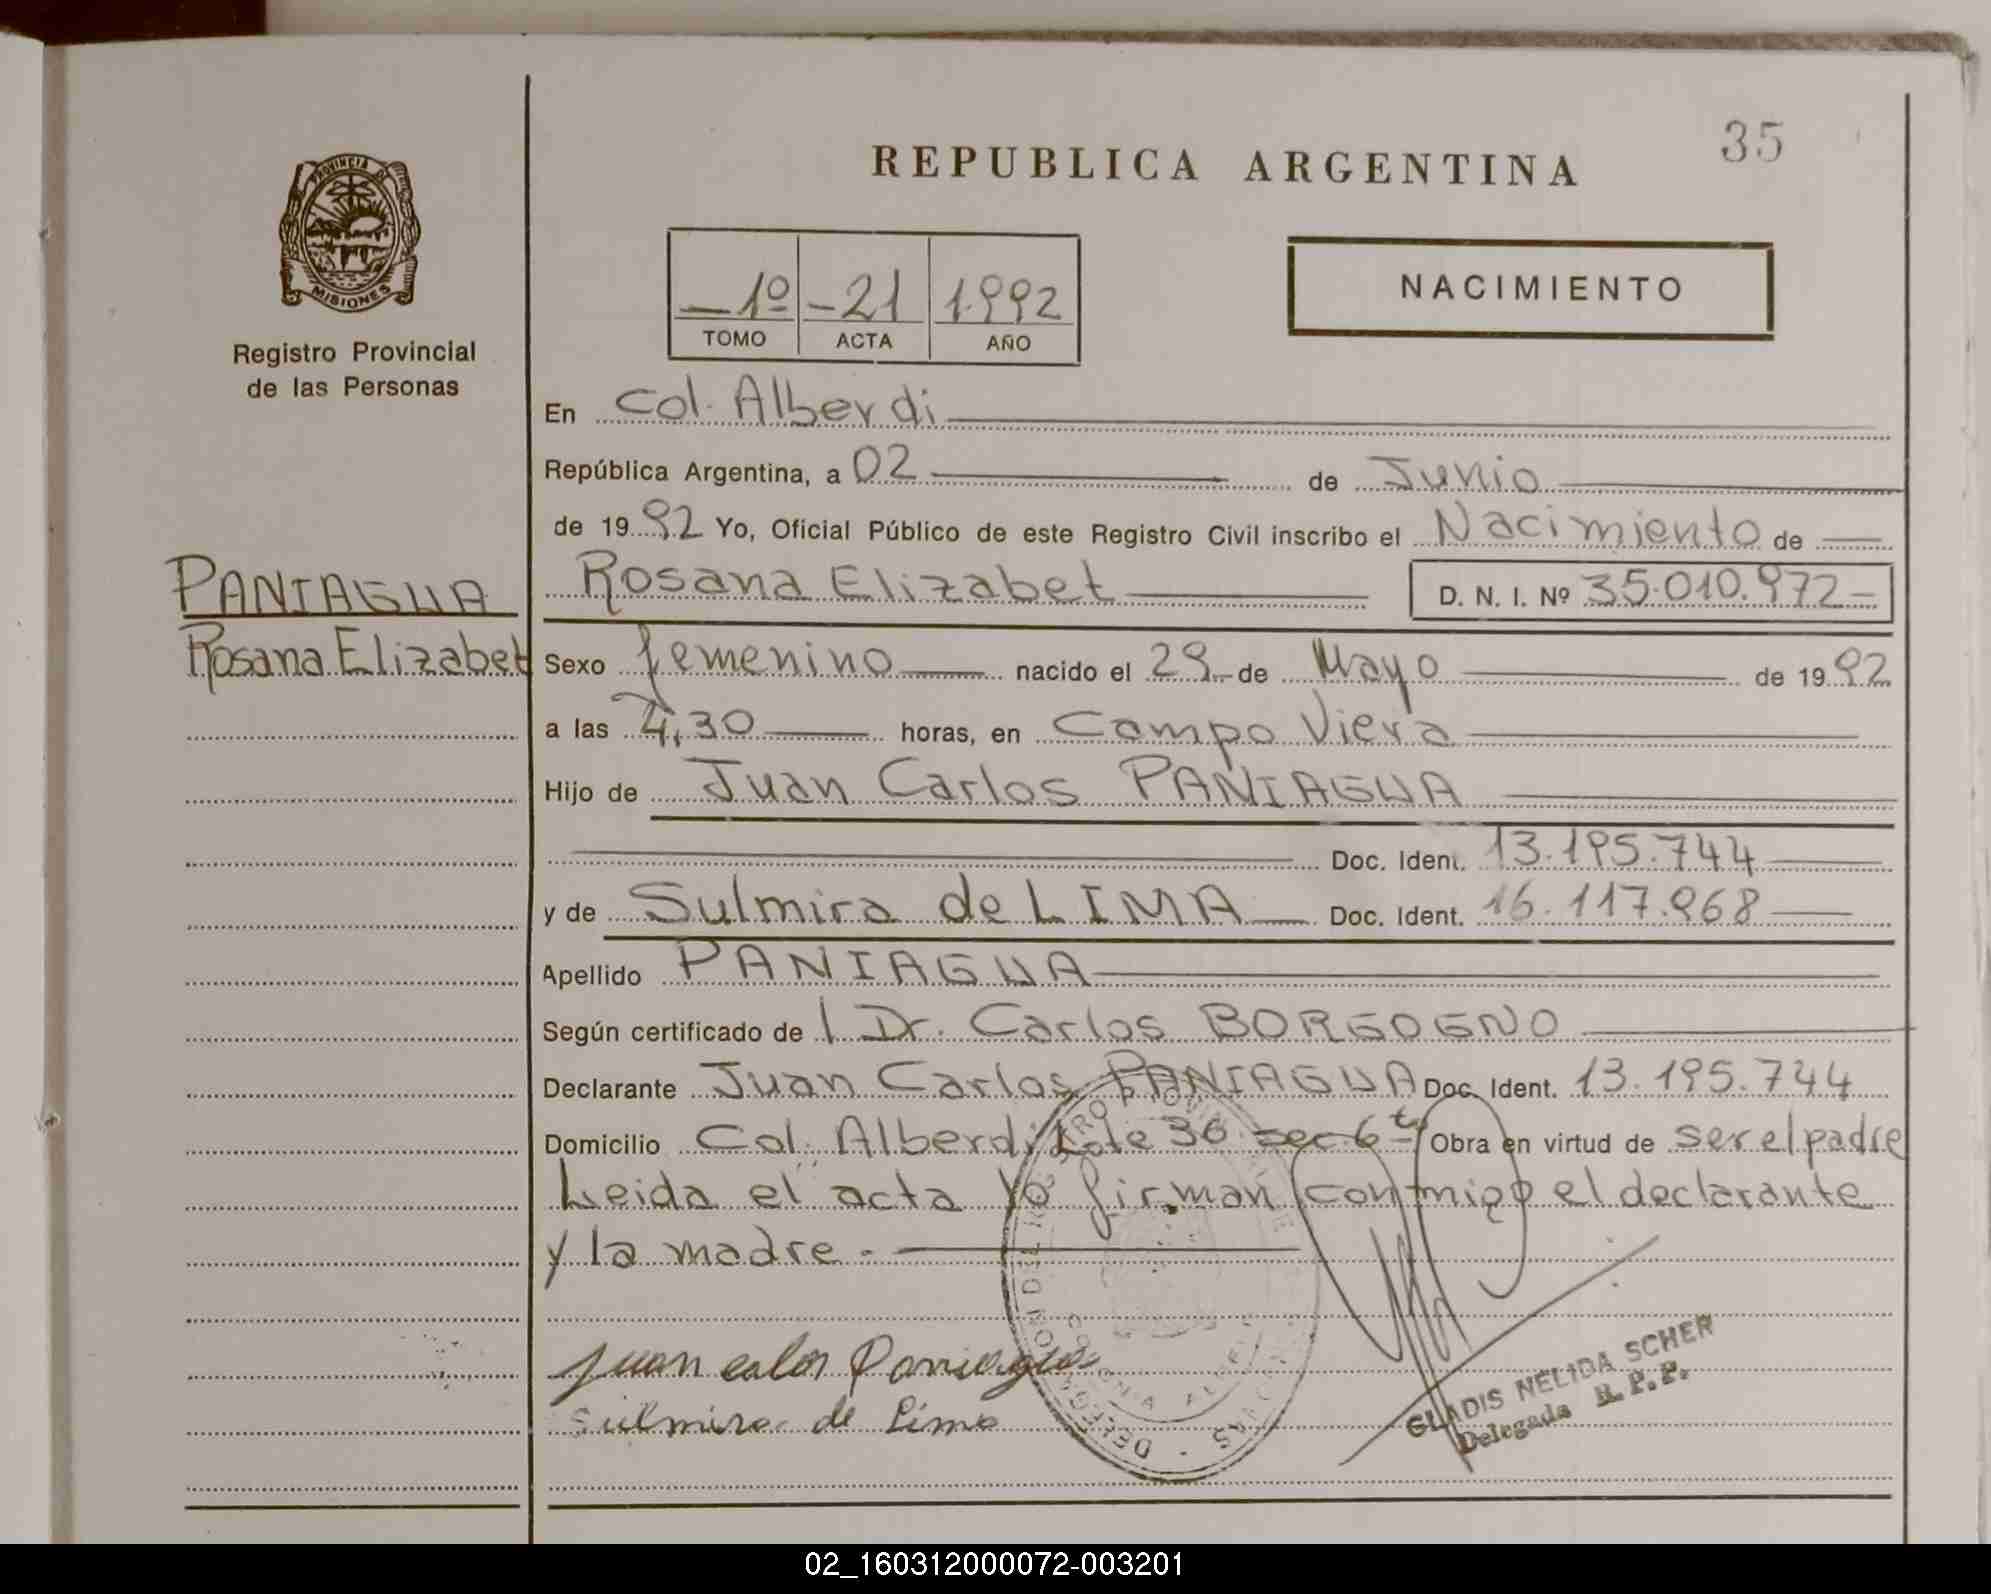 35
REPUBLICA ARGENTINA
PROVINCIA DE
MISIONES
Registro Provincial
de las Personas
1º -21 1992
TOMO ACTA AÑO
NACIMIENTO
En Col. Alberdi
República Argentina, a 02 de Junio
de 1992 Yo, Oficial Público de este Registro Civil inscribo el Nacimiento de
PANIAGUA
Rosana Elizabet
Rosana Elizabet D. N. I. Nº 35.010.972-
Sexo femenino nacido el 29 de Mayo de 1992
a las 4,30 horas, en Campo Viera
Hijo de Juan Carlos PANIAGUA
Doc. Ident. 13.195.744
y de Sulmira de LIMA Doc. Ident. 16.117.968
Apellido PANIAGUA
Según certificado de l Dr. Carlos BORGOGNO
Declarante Juan Carlos PANIAGUA Doc. Ident. 13.195.744
Domicilio Col. Alberdi Lote 36 sec. 6ta Obra en virtud de ser el padre
Leida el acta la firman conmigo el declarante
y la madre.-
Juan calos Paniagua
Sulmira de Lima
GLADIS NELIDA SCHER
Delegada R. P. P.
02_160312000072-003201